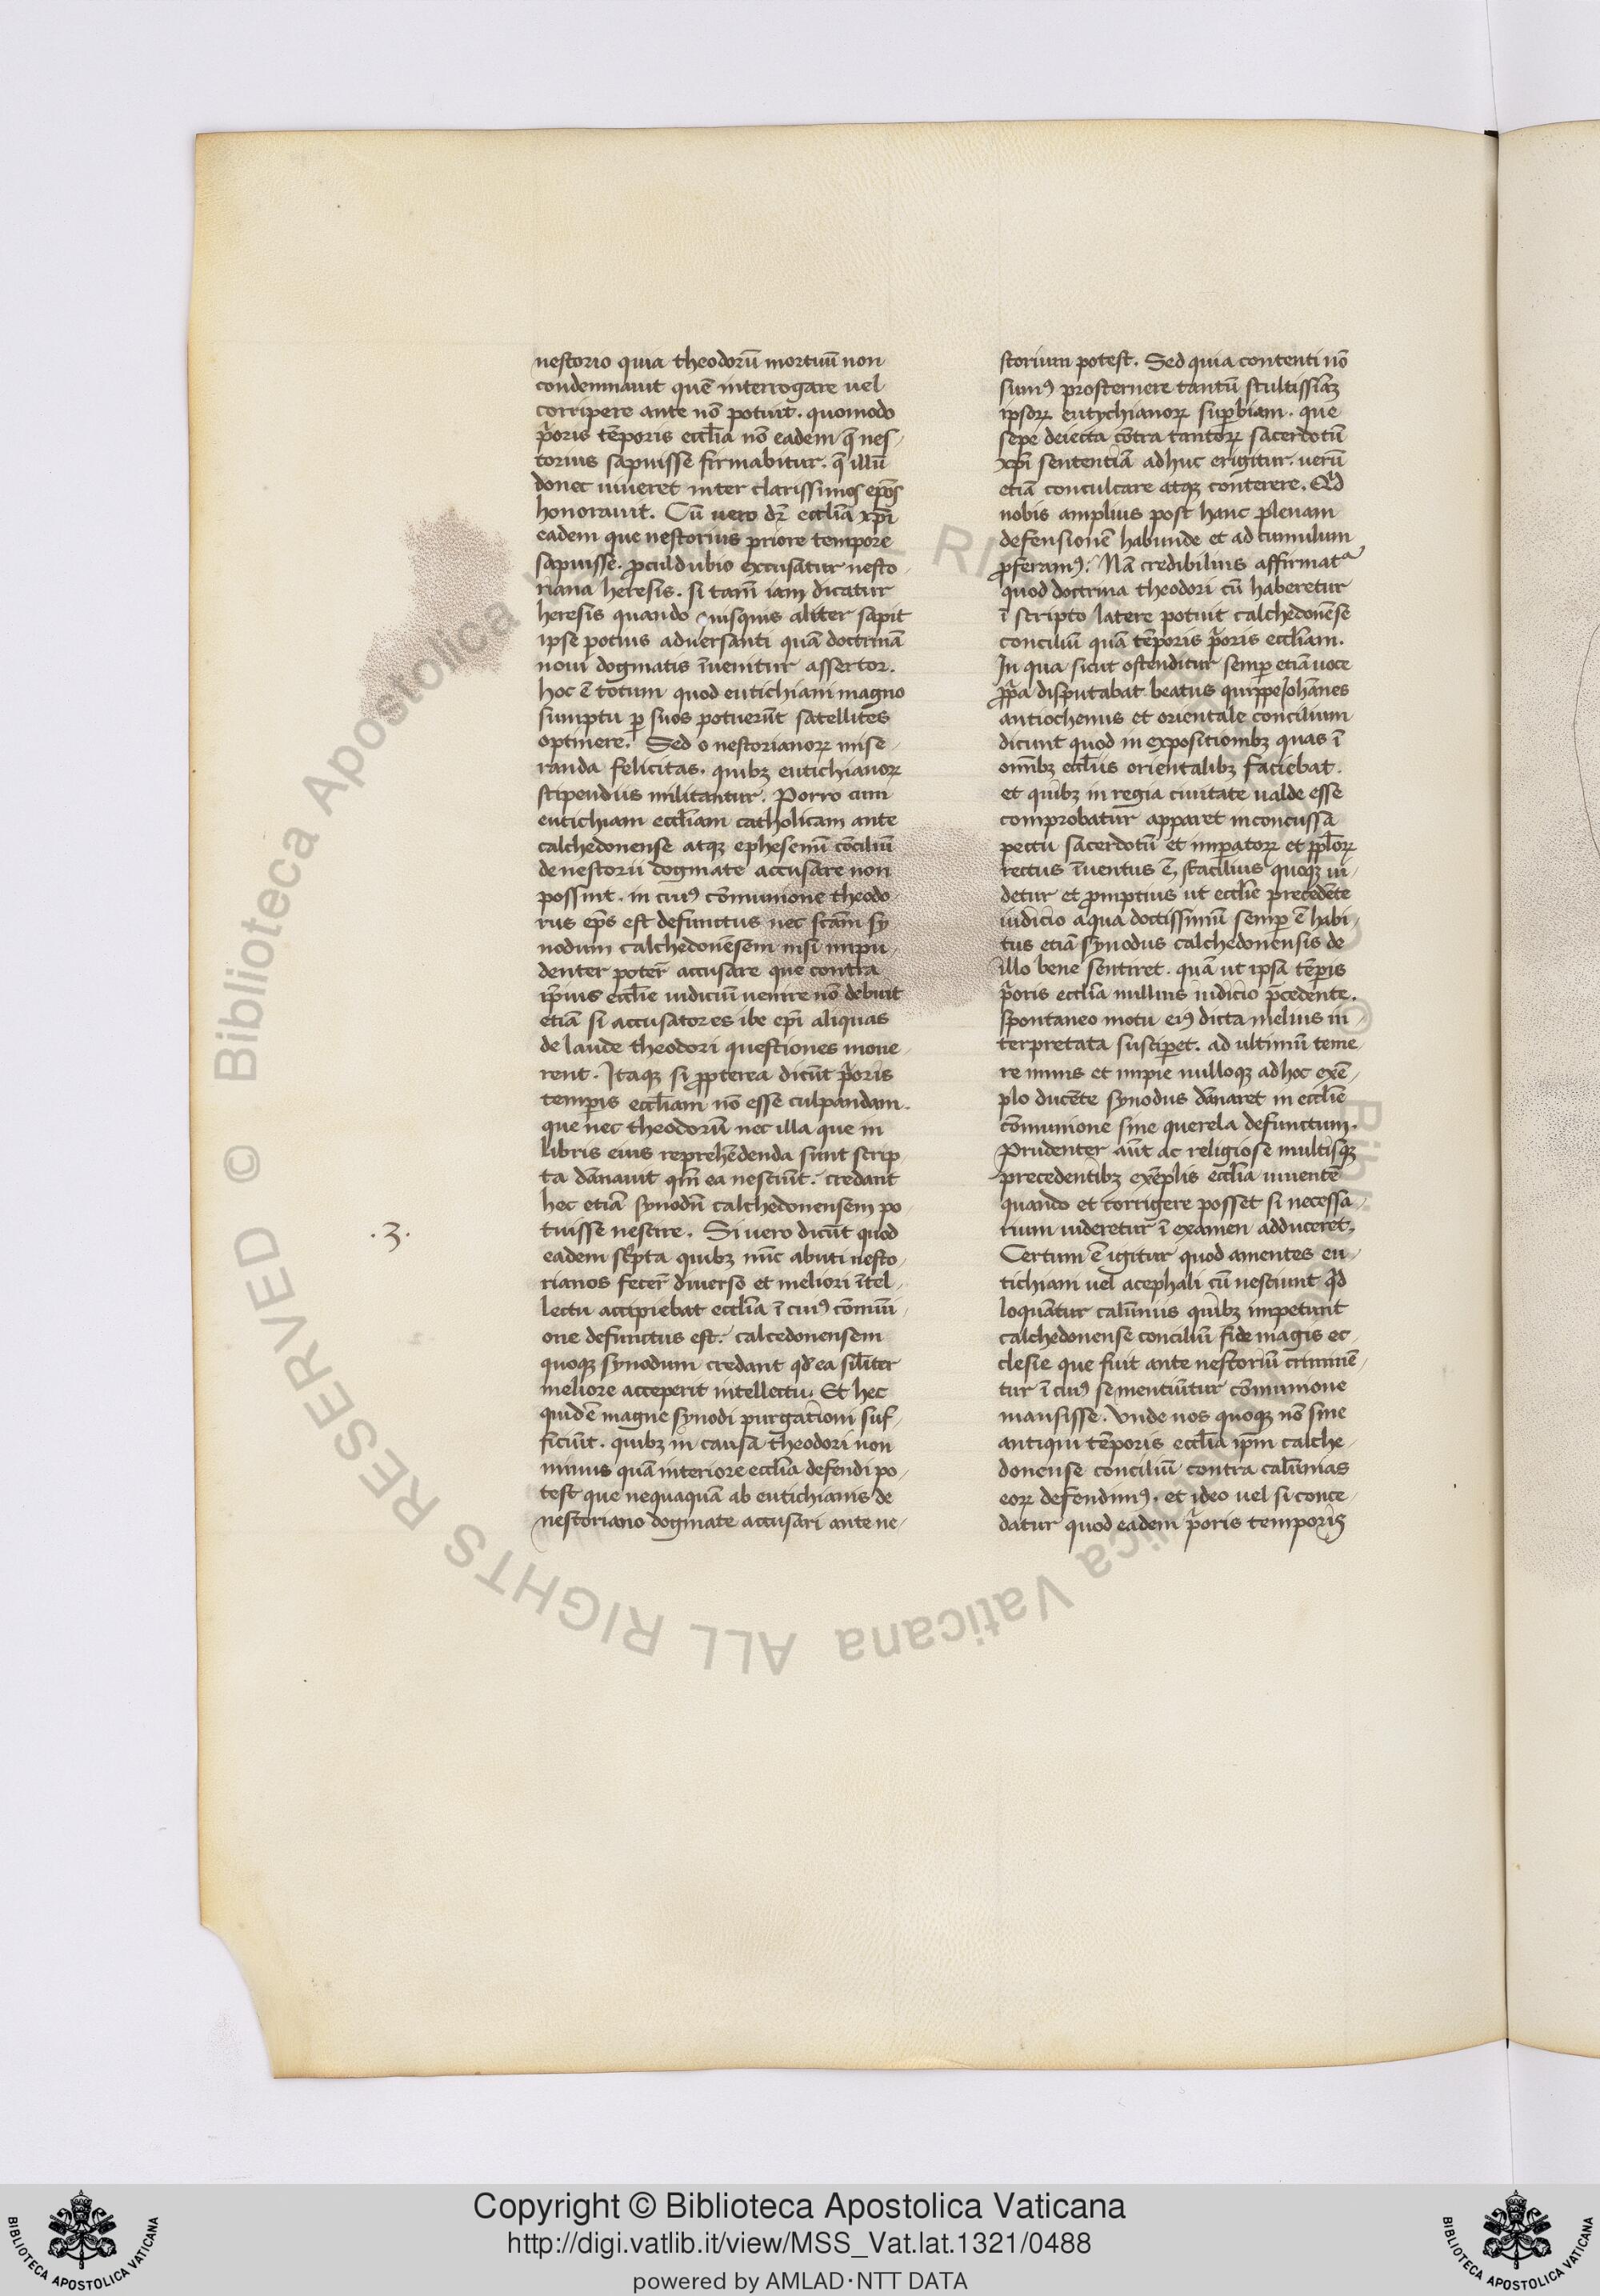 nestorio quia theodorū mortuū non
condemnauit quē interrogare uel
corripere ante nō potuit. quomodo
p̄oris tēporis eccl̄ia nō eadem q̄ nes-
torius sapuisse firmabitur. q̄ illū
donec uiueret inter clarissimos ep̄os
honorauit. Cū uero dr̄ eccl̄ia xp̄i
eadem que nestorius priore tempore
sapuisse. ꝓculdubio excusātur nesto-
riana heresis. si tam̄ iam dicatur
heresis quando quisquis aliter sapit
ipse potius aduersanti quā doctrinā
noui dogmatis īuenitur assertor.
hoc ē totum quod eutichiani magno
sumptu ꝑ suos potuerūt satellites
optinere. Sed o nestorianoꝝ mise-
randa felicitas. quibꝫ eutichianoꝝ
stipendiis militantur. Porro cum
eutichiani eccl̄iam catholicam ante
calchedonense atqꝫ ephesenū cōciliū
de nestorii dogmate accusare non
possint. in cuiꝰ cōmunione theodo-
rus ep̄s est defunctus nec sc̄am sy
nodum calchedonēsem nisi impu-
denter poter̄ accusare que contra
ip̄ius eccl̄ie iudiciū uenire nō debuit
etiā si accusatores ibe ep̄i aliquas
de laude theodori questiones moue-
rent. Itaqꝫ si ꝓpterea dicūt p̄oris
temꝑis eccl̄iam nō esse culpandam.
que nec theodorū nec illa que in
libris eius reprehēdenda sunt scrip
ta dānauit qm̄ ea nesciūt. credant
hec etiā synodū calchedonensem po
tuisse nescire. Si uero dicūt quod
·3·
eadem sc̄pta quibꝫ nūc abuti nesto-
rianos fecer̄ diuerso et meliori ītel-
lectu accipiebat eccl̄ia ī cuiꝰ cōmūi-
one defunctus est. calcedonensem
quoqꝫ synodum credant qd̄ ea sil̄iter
meliore acceperit intellectu. Et hec
quidē magne synodi purgationi suf-
ficiūt. quibꝫ in causa theodori non
minus quā interiore eccl̄ia defendi po-
test que nequaquā ab eutichianis de
nestoriano dogmate accusari ante ne-
storium potest. Sed quia contenti nō
sumꝰ prosternere tantū stultissīaꝫ
ipsoꝝ eutychianoꝝ suꝑbiam. que
sepe deiecta cōtra tantoꝝ sacerdotū
xp̄i sententiā adhuc erigitur. uerū
etiā conculcare atqꝫ conterere. Qd̄
nobis amplius post hanc plenam
defensionē habunde et ad cumulum
ꝓferamꝰ. Nā credibilius affirmat͛
quod doctrina theodori cū haberetur
ī scripto latere potuit calchedonēse
conciliū quā tēporis p̄oris eccl̄iam.
In qua sicut ostenditur semꝑ etiā uoce
ꝓp̄a disputabat beatus quippe Johānes
antiochenus et orientale concilium
dicunt quod in expositionibꝫ quas ī
om̄ibꝫ eccl̄iis orientalibꝫ faciebat.
et quibꝫ in regia ciuitate ualde esse
comprobatur apparet inconcussa
pectu sacerdotū et imꝑatoꝝ et ppl̄oꝝ
rectus īuentus ē, ffacilius quoqꝫ ui-
detur et ꝓmptius ut eccl̄ie precedēte
iudicio a qua doctissimū semꝑ ē habi-
tus etiā synodus calchedonensis de
illo bene sentiret. quā ut ipsa tēꝑis
p̄oris eccl̄ia nullius iudicio p̄cedente.
spontaneo motu eiꝰ dicta melius in-
terpretata susciꝑet. ad ultimū teme-
re nimis et impie nulloqꝫ ad hoc exē-
plo ducēte synodus dānaret in eccl̄ie
cōmunione sine querela defunctum.
Prudenter aūt ac religiose multisqꝫ
precedentibꝫ exēplis eccl̄ia uiuentē
quando et corrigere posset si necessa-
rium uideretur ī examen adduceret.
Certum ē igitur quod amentes eu-
tichiani uel acephali cū nesciunt qd̄
loquātur calūniis quibꝫ impetunt
calchedonense conciliū fide magis ec-
clesie que fuit ante nestoriū criminē-
tur ī cuiꝰ se mentiūtur cōmunione
mansisse. Unde nos quoqꝫ nō sine
antiqui tēporis eccl̄ia ip̄m calche-
donense conciliū contra calūnias
eoꝝ defendimꝰ. et ideo uel si conce-
datur quod eadem p̄oris temporis
© Biblioteca Apostolica Vaticana ALL RIGHTS RESERVED
Copyright © Biblioteca Apostolica Vaticana
http://digi.vatlib.it/view/MSS_Vat.lat.1321/0488
powered by AMLAD·NTT DATA
BIBLIOTECA APOSTOLICA VATICANA
BIBLIOTECA APOSTOLICA VATICANA